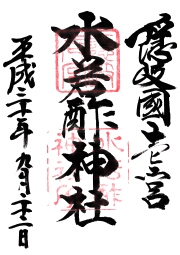 隠岐國壱宮
水若酢神社
平成二十年九月二十一日